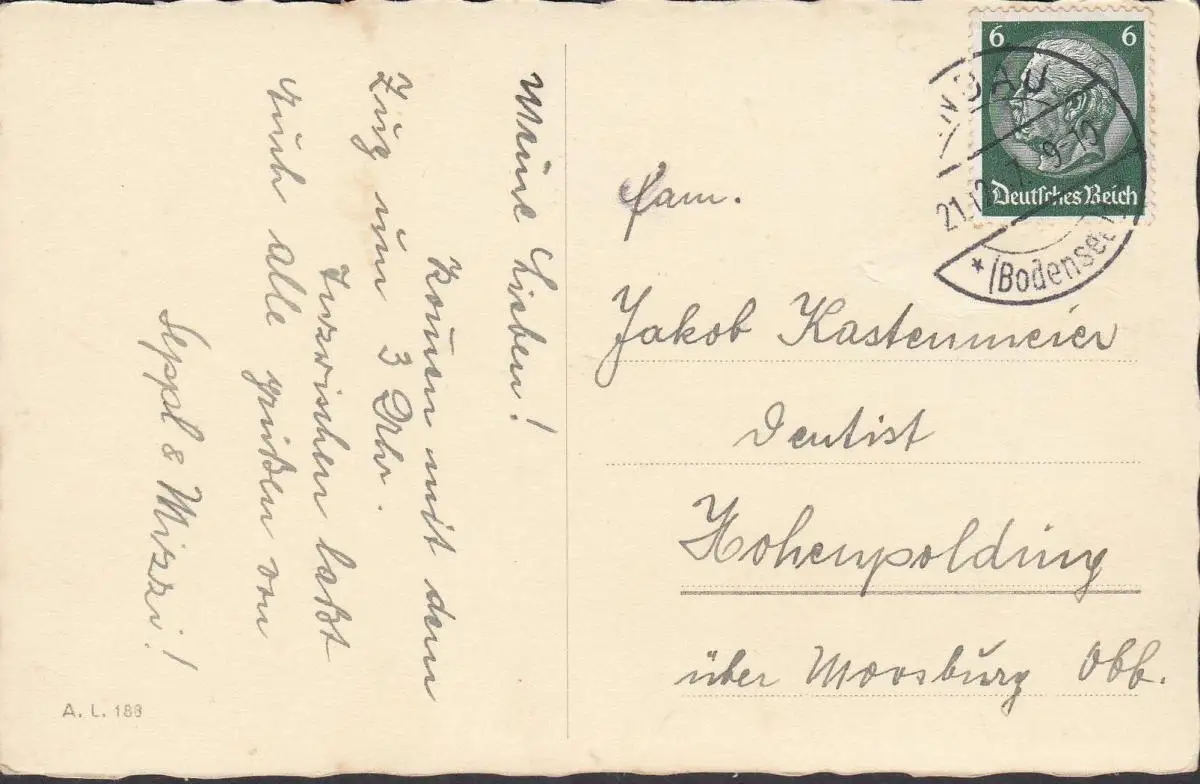 Meine Lieben!
Komen mit dem
Zug um 3 Uhr.
Inzwischen laßt
Euch alle grüßen von
Seppl & Mizzi!
A. L. 188
6 6
Deutsches Reich
LINDAU
21.12. 9-10
* (Bodensee)
Fam.
Jakob Kastenmeier
Dentist
Hohenpolding
über Moosburg Obb.